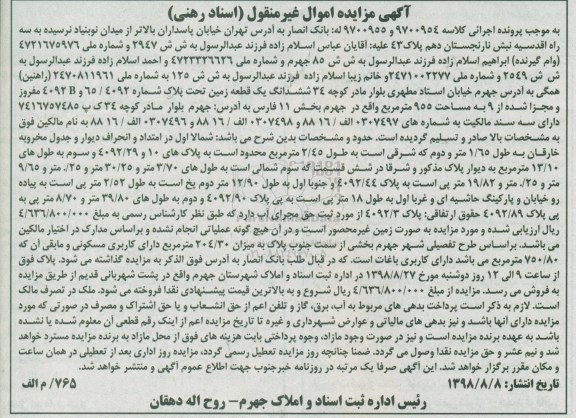 آگهی مزایده اموال غیرمنقول (اسناد رهنی)
به موجب پرونده اجرائی کلاسه ۹۷۰۰۹۵۴ و ۹۷۰۰۹۵۵ له: بانک انصار به آدرس تهران خیابان پاسداران بالاتر از میدان نوبنیاد نرسیده به سه
راه اقدسیه نبش نارنجستان دهم پلاک ۴۳ علیه: آقایان عباس اسلام زاده فرزند عبدالرسول به ش ش ۲۹۴۷ و شماره ملی ۴۷۲۱۶۷۵۹۷۶
(وام گیرنده) ابراهیم اسلام زاده فرزند عبدالرسول به ش ش ۸۵ جهرم و شماره ملی ۴۷۲۳۳۲۶۶۲۶ و احمد اسلام زاده فرزند عبدالرسول به
ش ش ۲۵۴۹ و شماره ملی ۲۴۷۱۰۰۲۲۷۷ و خانم زیبا اسلام زاده فرزند عبدالرسول به ش ش ۱۲۵ به شماره ملی ۲۴۷۰۸۱۱۹۶۱ (راهنین)
همگی به آدرس جهرم خیابان استاد مطهری بلوار مادر کوچه ۳۴ ششدانگ یک قطعه زمین تحت پلاک شماره ۴۰۹۲ / ۶۰ و ۴۰۹۲ B مفروز
و مجزا شده از ۹ به مساحت ۹۵۵ مترمربع واقع در جهرم بخش ۱۱ فارس به آدرس: جهرم بلوار مادر کوچه ۳۴ ک پ ۷۴۱۶۷۵۷۴۸۵
دارای سه سند مالکیت به شماره های ۰۳۰۷۴۹۷ الف / ۱۶ ۸۸ و ۰۳۰۷۴۹۸ الف / ۱۶ ۸۸ و ۰۳۰۷۴۹۶ الف / ۱۶ ۸۸ به نام مالکین فوق
به مشخصات بالا صادر و تسلیم گردیده است. حدود و مشخصات بدین شرح می باشد: شمالا اول در امتداد و انحراف دیوار و جدول مخروبه
خارقان به طول ۱/۶۵ متر و دوم که شرقی است به طول ۲/۴۵ مترمربع محدود است به پلاک های ۱۰ و ۴۰۹۲/۲۹ و سوم به طول های
۱۳/۱۰ مترمربع به دیوار پلاک مذکور و شرقا در شش قسمت که سوم شمالی است به طول های ۳/۷۰ متر و ۳۰/۲۵ متر و ۲۵/. متر و ۹/۶۵
متر و ۲۵/. متر و ۱۹/۸۲ متر پی است به پلاک ۴۰۹۲/۴۴ و جنوبا اول به طول ۱۲/۹۰ متر دوم پخ است به طول ۲/۵۲ متر پی است به پیاده
رو خیابان و پارکینگ حاشیه ای و غربا اول به طول ۱۸ متر پی است به پی پلاک ۴۰۹۲/۹۰ و دوم به طول های ۳۹/۸۰ متر و ۸/۷۰ متر پی به
پی پلاک ۴۰۹۲/۸۹ حقوق ارتفاقی: پلاک ۴۰۹۲/۳ از مورد ثبت حق مجرای آب دارد که طبق نظر کارشناس رسمی به مبلغ ۴/۶۳۶/۸۰۰/۰۰۰
ریال ارزیابی شده و مورد مزایده به صورت زمین غیرمحصور است و در آن هیچ گونه عملیاتی انجام نشده و براساس مدارک در اختیار مالکین
می باشد. براساس طرح تفصیلی شهر جهرم بخشی از سمت جنوب پلاک به میزان ۲۰۴/۳۰ مترمربع دارای کاربری مسکونی و مابقی آن که
۷۵۰/۸۰ مترمربع می باشد دارای کاربری باغات است. که در قبال طلب بانک انصار به آدرس فوق الذکر به مزایده گذاشته می شود. پلاک فوق
از ساعت ۹ الی ۱۲ روز دوشنبه مورخ ۱۳۹۸/۸/۲۷ در اداره ثبت اسناد و املاک شهرستان جهرم واقع در پشت شهربانی قدیم از طریق مزایده
به فروش می رسد. مزایده از مبلغ ۴/۶۳۶/۸۰۰/۰۰۰ ریال شروع و به بالاترین قیمت پیشنهادی نقدا فروخته می شود. ملک در تصرف مالک
است. لازم به ذکر است پرداخت بدهی های مربوط به آب، برق، گاز و تلفن اعم از حق انشعاب و یا حق اشتراک و مصرف در صورتی که مورد
مزایده دارای آنها باشد و نیز بدهی های مالیاتی و عوارض شهرداری و غیره تا تاریخ مزایده اعم از اینک رقم قطعی آن معلوم شده یا نشده
باشد به عهده برنده مزایده است و نیز در صورت وجود مازاد، وجوه پرداختی بابت هزینه های فوق از محل مازاد به برنده مزایده مسترد خواهد
شد و نیم عشر و حق مزایده نقدا وصول می گردد. ضمنا چنانچه روز مزایده تعطیل رسمی گردد، مزایده روز اداری بعد از تعطیلی در همان ساعت
و مکان مقرر برگزار خواهد شد. این آگهی صرفا یک مرتبه در روزنامه خبرجنوب جهت اطلاع عموم آگهی و منتشر خواهد شد.
تاریخ انتشار: ۱۳۹۸/۸/۸
۷۶۵/ م الف
رئیس اداره ثبت اسناد و املاک جهرم – روح اله دهقان